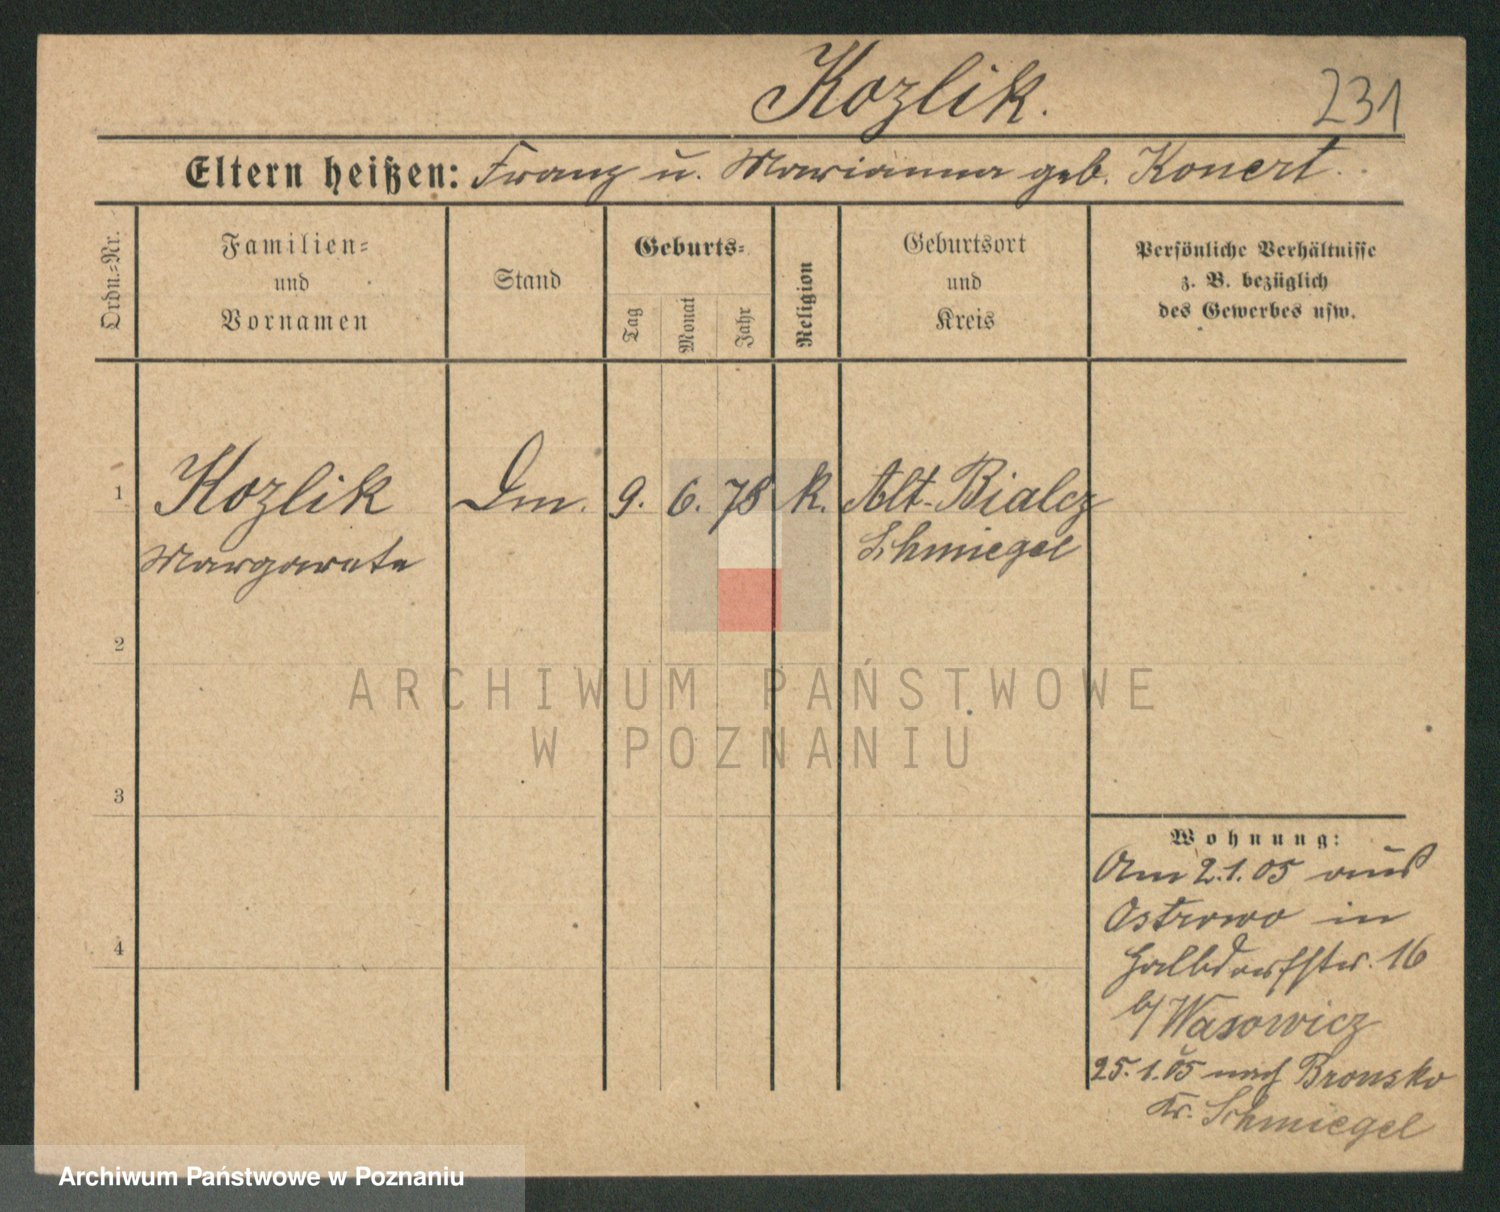 Kozlik.
231
Eltern heißen: Franz u. Marianna geb. Konert.
Ordn.-Nr.
Familien-
und
Vornamen
Stand
Geburts-
Tag
Monat
Jahr
Religion
Geburtsort
und
Kreis
Persönliche Verhältnisse
z. B. bezüglich
des Gewerbes usw.
1 Kozlik Dm. 9. 6. 78 k. Alt-Bialcz
Margarete Schmiegel
2
3
4
Wohnung:
Am 2.1.05 aus
Ostrowo in
Halbdorfstr. 16
b/ Wasowicz
25.1.05 nach Bronsko
Kr. Schmiegel
ARCHIWUM PAŃSTWOWE
W POZNANIU
Archiwum Państwowe w Poznaniu